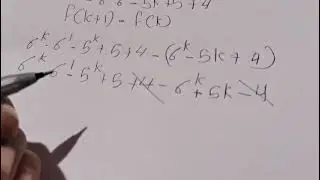 f(k+1) - f(k)
6^k · 6^1 - 5^k + 5 + 4 - (6^k - 5k + 4)
6^k 6^1 - 5^k + 5 + 4 - 6^k + 5k - 4